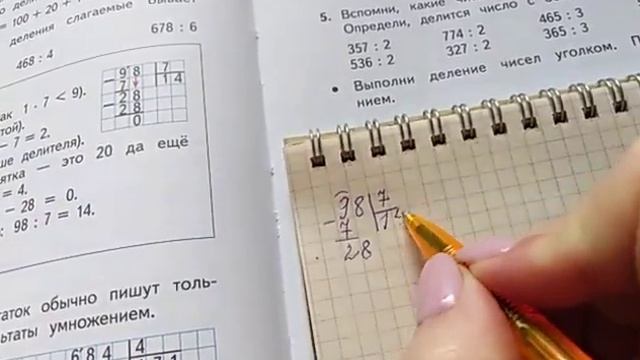 = 100 + 20 +
деления слагаемые
468 : 4
678 : 6
1 · 7 < 9).
− 7 = 2.
делителя).
— это 20 да ещё
= 4.
− 28 = 0.
98 : 7 = 14.
98 7
− 7 14
− 28
28
0
обычно пишут толь-
умножением.
684 4
5. Вспомни, какие
Определи, делится число с
357 : 2 774 : 2 465 : 3
536 : 2 327 : 2 365 : 3
• Выполни деление чисел уголком. П
нием.
98 7
− 7 1
28